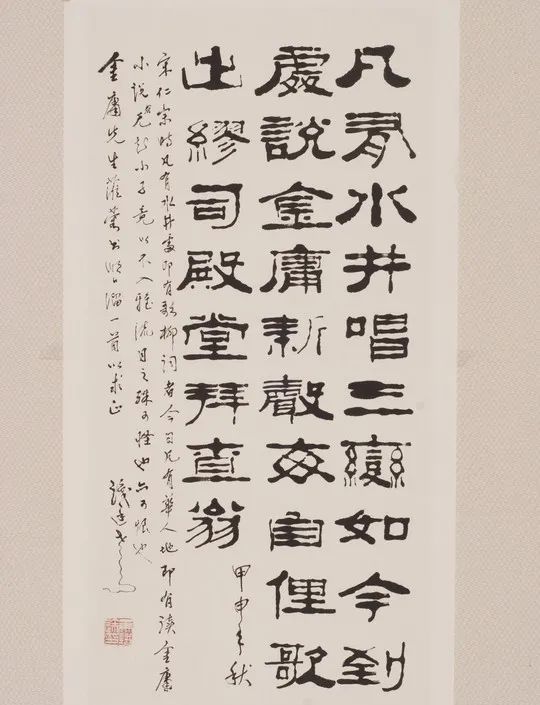 凡有水井唱三變如今到
處說金庸新聲每自俚歌
出繆司殿堂拜查翁
甲申年秋
宋仁宗時凡有水井處即有歌柳詞者今日凡有華人地即有讀金庸
小說者小子竟以不入雅流目之殊可怪也亦可恨也
金庸先生一首以求正